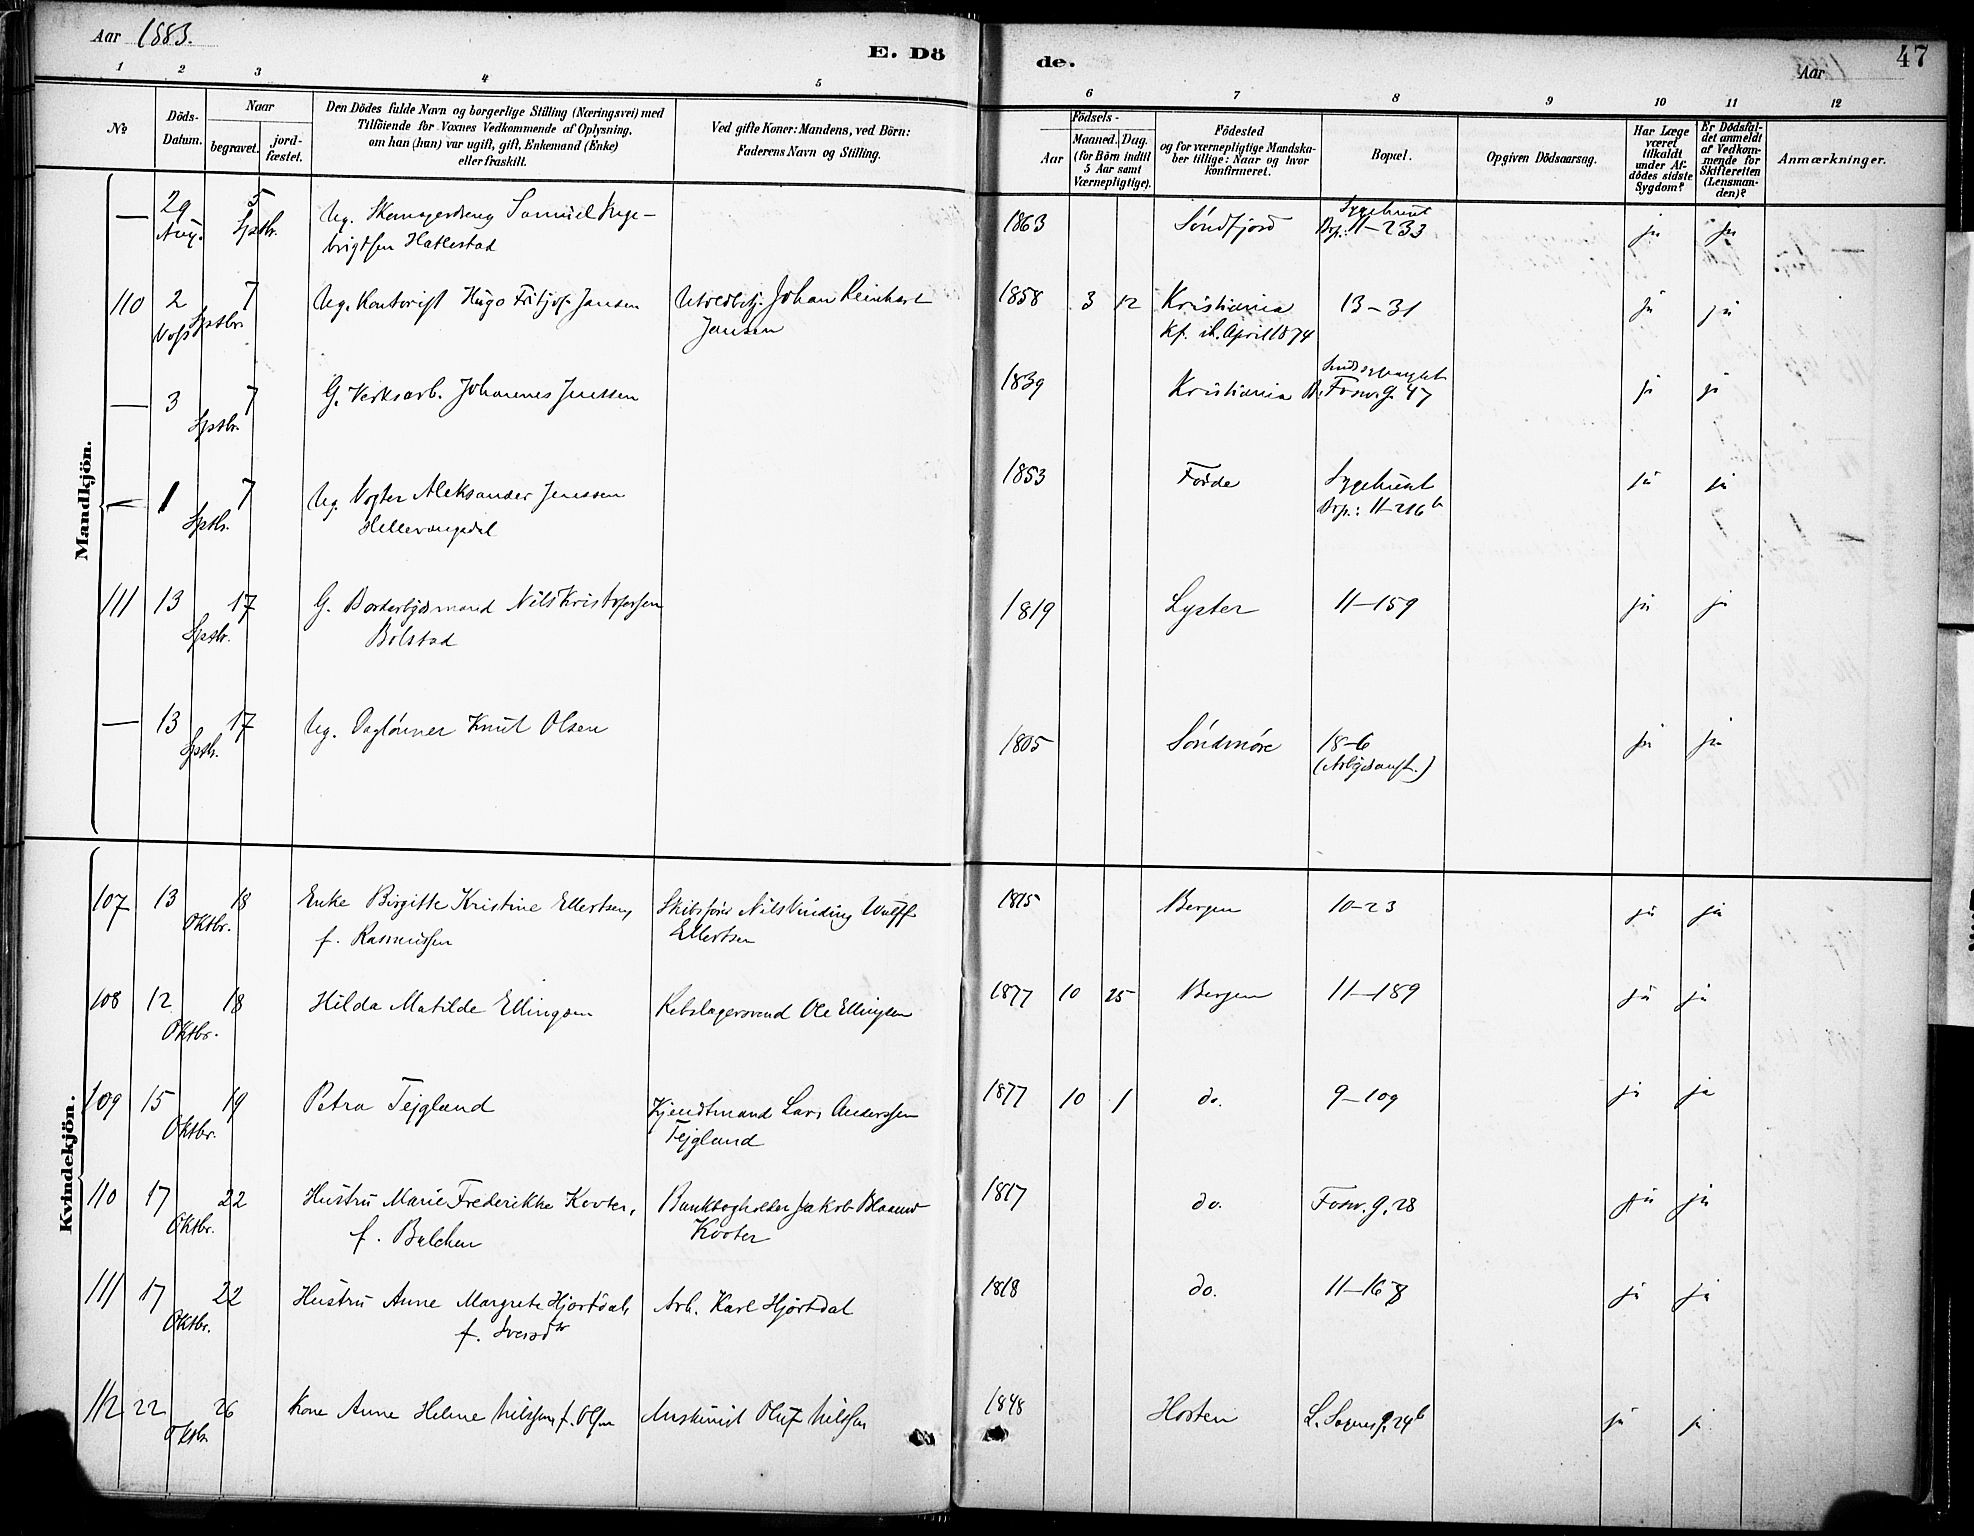 Aar 1883.
E. Dö
de.
Aar
47
1 2 3 4 5
6 7 8 9 10 11 12
No
Döds-Datum.
Naar
begravet.
jord-fæstet.
Den Dödes fulde Navn og borgerlige Stilling (Næringsvei) med
Tilföiende for Voxnes Vedkommende af Oplysning,
om han (hun) var ugift, gift, Enkemand (Enke)
eller fraskilt.
Ved gifte Koner: Mandens, ved Börn:
Faderens Navn og Stilling.
Födsels-
Aar
Maaned. Dag.
(for Börn indtil
5 Aar samt
Værnepligtige).
Födested
og for værnepligtige Mandska-
ber tillige: Naar og hvor
konfirmeret.
Bopæl.
Opgiven Dödsaarsag.
Har Læge
været
tilkaldt
under Af-
dödes sidste
Sygdom?
Er Dödsfal-
det anmeldt
af Vedkom-
mende for
Skifteretten
(Lensman-
den)?
Anmærkninger.
Mandkjön.
— 29 Aug. 5 Sptbr. Ug. Samuel Inge-
brigtsen Hatlestad
1863 Søndfjord Sygehuset
11–233 ja ja
110 2 7 Sptbr. Ug. Kontorist Hugo Fritjof Jansen Johan Reinhart
Jansen
1858 3 12 Kristiania 13–31 ja ja
Kf. April 1874
— 3 7 Sptbr. G. Verksarb. Johannes Jenssen
1839 Kristiania Fosw.g. 47 ja ja
— 1 7 Sptbr. Ug. Vogter Aleksander Jenssen
1853 Førde Sygehuset
11–216b ja ja
111 13 17 Sptbr. G. Nils Kristofersen
Bolstad
1819 Lyster 11–159 ja ja
— 13 17 Sptbr. Ug. Daglønner Knut Olsen
1805 Søndmøre 18–6
(Arbeidsanst.) ja ja
Kvindekjön.
107 13 18 Oktbr. Enke Birgitte Kristine Ellertsen, Skibsfører Nils Vinding Wulff
f. Rasmussen Ellertsen
1815 Bergen 10–23 ja ja
108 12 18 Oktbr. Hilda Matilde Ellingsen Rebslagersvend Ole Ellingsen
1877 10 25 Bergen 11–189 ja ja
109 15 19 Oktbr. Petra Tejgland Lars Anderssen
Tejgland
1877 10 1 do. 9–109 ja ja
110 17 22 Oktbr. Hustru Marie Frederikke Koster, Bankbogholder Jakob
f. Balchen Koster
1817 do. Fosw.g. 28 ja ja
111 17 22 Oktbr. Hustru Anne Margrete Hjortdal, Arb. Karl Hjortdal
f. Iversdtr
1818 do. 11–168 ja ja
112 22 26 Oktbr. Kone Anne Helene Nilssen, f. Olsen Maskinist Oluf Nilssen
1848 Horten ja ja